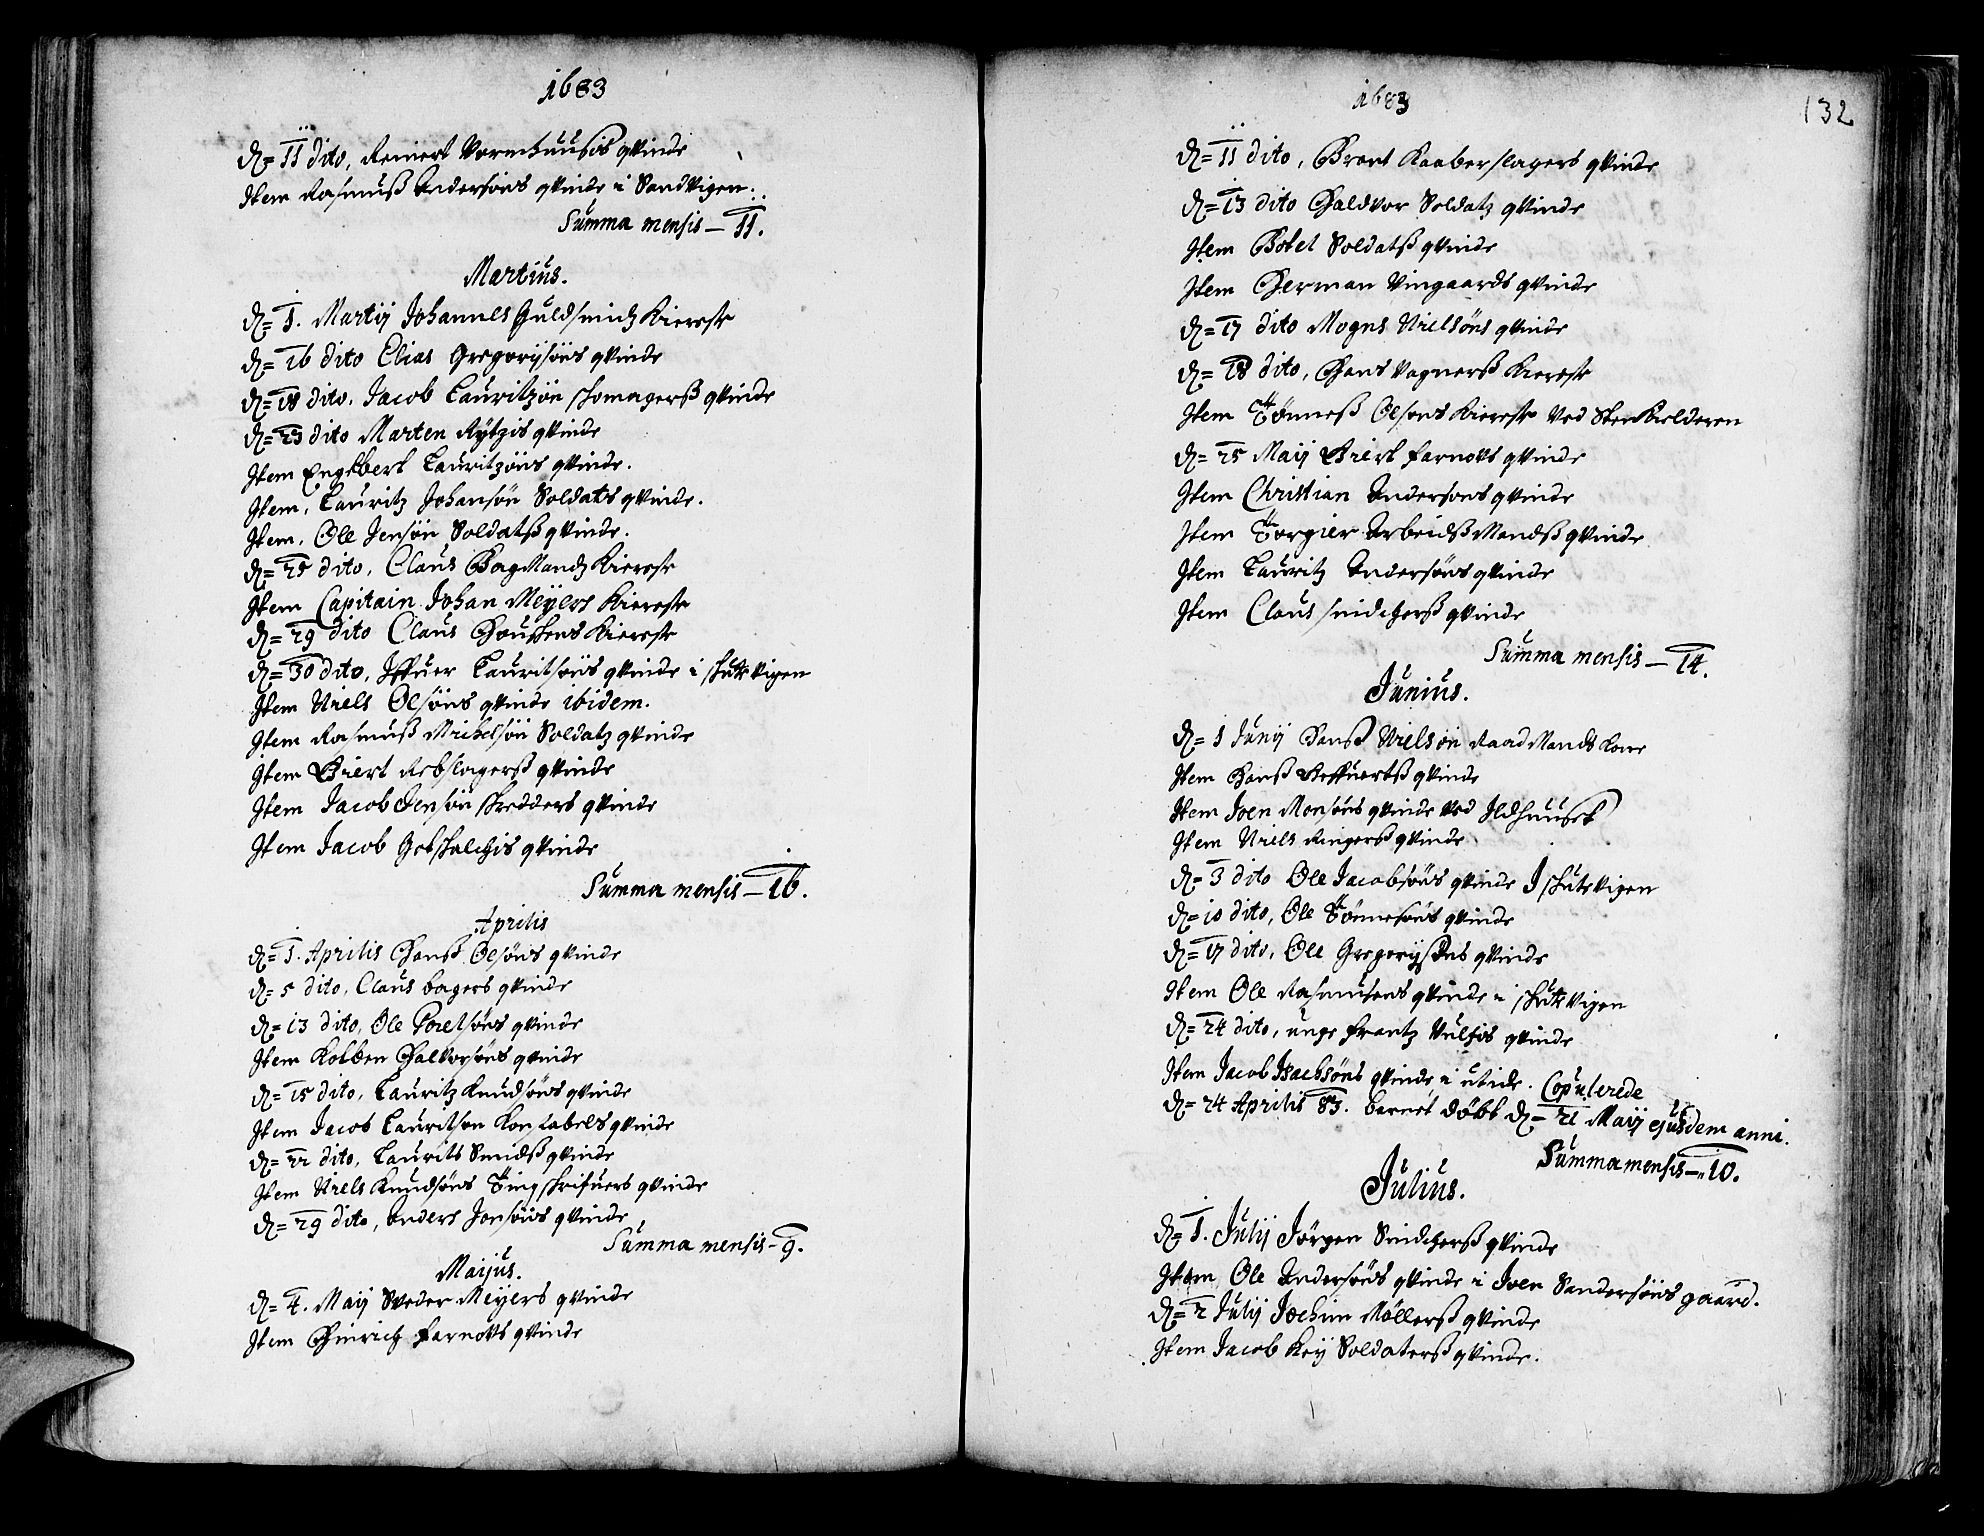 1683
D= 11 dito, Reinert Vormhuusis qvinde
Item Rasmuss Andersöns qvinde i Sandvigen.
Summa mensis — 11.
Martius.
D= 1. Martij Johannes Guldsmidz Kiereste
D= 16 dito Elias Gregorysöns qvinde
D= 18 dito, Jacob Lauritzön skomagerss qvinde
D= 23 dito Marten qvinde
Item Engelbert Lauritzöns qvinde.
Item, Lauritz Johansön Soldats qvinde.
Item, Ole Jensön Soldatss qvinde.
D= 25 dito, Claus Kiereste
Item Capitain Johan Meyers Kiereste
D= 29 dito Claus Kiereste
D= 30 dito, Iffuer Lauritsöns qvinde i skutevigen
Item Niels Olsöns qvinde ibidem.
Item Rasmuss Michelsön Soldatz qvinde
Item Giert Rebslagerss qvinde
Item Jacob Jensön skredders qvinde
Item Jacob Gotskalchis qvinde
Summa mensis — 16.
Aprilis
D= 1. Aprilis Hanss Olsöns qvinde
D= 5 dito, Claus bagers qvinde
D= 13 dito, Ole Poelsöns qvinde
Item Kolben Halvorsöns qvinde
D= 15 dito, Lauritz Knudsöns qvinde
Item Jacob Lauritson Konstabels qvinde
D= 22 dito, Laurits Smidss qvinde
Item Niels Knudsöns Tingskrifuers qvinde
D= 29 dito, Anders Jonsöns qvinde
Summa mensis - 9.
Maijus.
D= 4. Maij Sveder Meyers qvinde
Item Hinrich Farnovs qvinde
1683
132
D= 11 dito, Brant Kaaberslagers qvinde
D= 13 dito Haldvor Soldatz qvinde
Item Botel Soldatss qvinde
Item Herman Vingaards qvinde
D= 17 dito Mogns Nielsöns qvinde
D= 18 dito, Hans Vagnerss Kiereste
Item Tönness Olsons Kiereste ved Steen Kielderen
D= 25 Maij Giert Farnovs qvinde
Item Christian Andersons qvinde
Item Torgier Arbeidss Mandss qvinde
Item Lauritz Andersöns qvinde
Item Claus snidcherss qvinde
Summa mensis — 14.
Junius.
D= 1 Junij Hanss Nielsön Raad Mands Kone
Item Hanss qvinde
Item Iven Monsöns qvinde ved Ildhuuset
Item Niels Ringerss qvinde
D= 3 dito Ole Jacobsöns qvinde I skutevigen
D= 10 dito, Ole Tönnesöns qvinde
D= 17 dito, Ole Gregorysöns qvinde
Item Ole Rasmusons qvinde i skutevigen
D= 24 dito, unge Frantz Vulfis qvinde
Item Jacob Isachsöns qvinde i utide. Copulerede
D= 24 Aprilis 83. barnet döbt D= 21 Maij ejusdem anni.
Summa mensis — 10.
Julius.
D= 1. Julij Jörgen Snidcherss qvinde
Item Ole Andersöns qvinde i Iven Sandersöns gaard.
D= 2 Julij Jochim Möllerss qvinde
Item Jacob Key Soldaterss qvinde.